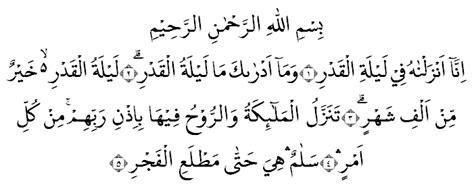 بِسْمِ اللهِ الرَّحْمٰنِ الرَّحِيْمِ
اِنَّآ اَنْزَلْنٰهُ فِيْ لَيْلَةِ الْقَدْرِ ۝١ وَمَآ اَدْرٰىكَ مَا لَيْلَةُ الْقَدْرِۗ ۝٢ لَيْلَةُ الْقَدْرِ ەۙ خَيْرٌ
مِّنْ اَلْفِ شَهْرٍۗ ۝٣ تَنَزَّلُ الْمَلٰۤىِٕكَةُ وَالرُّوْحُ فِيْهَا بِاِذْنِ رَبِّهِمْۚ مِنْ كُلِّ
اَمْرٍۛ ۝٤ سَلٰمٌۛ هِيَ حَتّٰى مَطْلَعِ الْفَجْرِ ۝٥